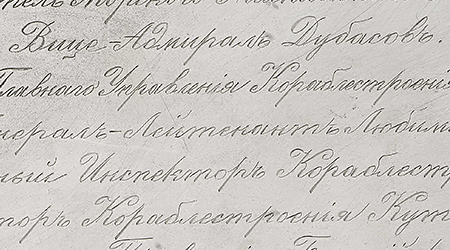 Вице-Адмиралъ Дубасовъ.
Главнаго Управленія Кораблестроенія
Лейтенантъ Любим
ный Инспекторъ Кораблестр
торъ Кораблестроенія Кут